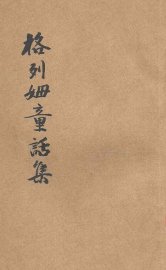 格列姆童話集